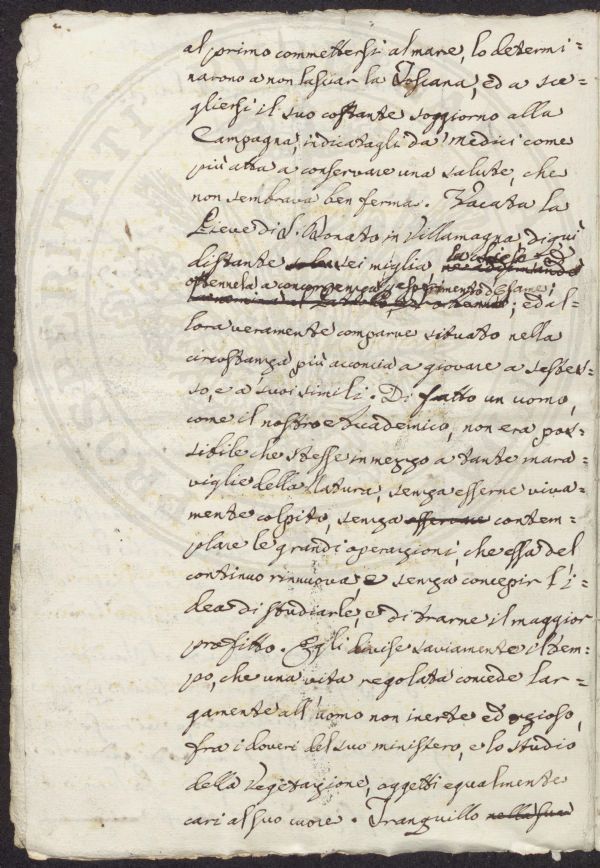 al primo commettersi al mare, lo determi=
narono a non lasciar la Toscana, ed a sce=
gliersi il suo costante soggiorno alla
Campagna, indicatagli da' Medici come
più atta a conservare una salute, che
non sembrava ben ferma. Vacata la
Pieve di S. Donato in Villamagna di qui
distante solo sei miglia, la chiese ed
ottennela a concorrenza, ed esperimento d'esame;
; ed al=
lora veramente comparve situato nella
circostanza più acconcia a giovare a sestes=
so, e a' suoi simili. Di fatto un uomo,
come il nostro Accademico, non era pos=
sibile che stesse in mezzo a tante mara=
viglie della Natura, senza esserne viva=
mente colpito, senza contem=
plare le grandi operazioni, che essa del
continuo rinnuova e senza concepir l'i=
dea di studiarle, e di trarne il maggior
profitto. Egli divise saviamente il tem=
po, che una vita regolata concede lar=
gamente all'uomo non inerte ed ozioso,
fra i doveri del suo ministero, e lo studio
della Vegetazione, oggetti equalmente
cari al suo cuore. Tranquillo nella sua